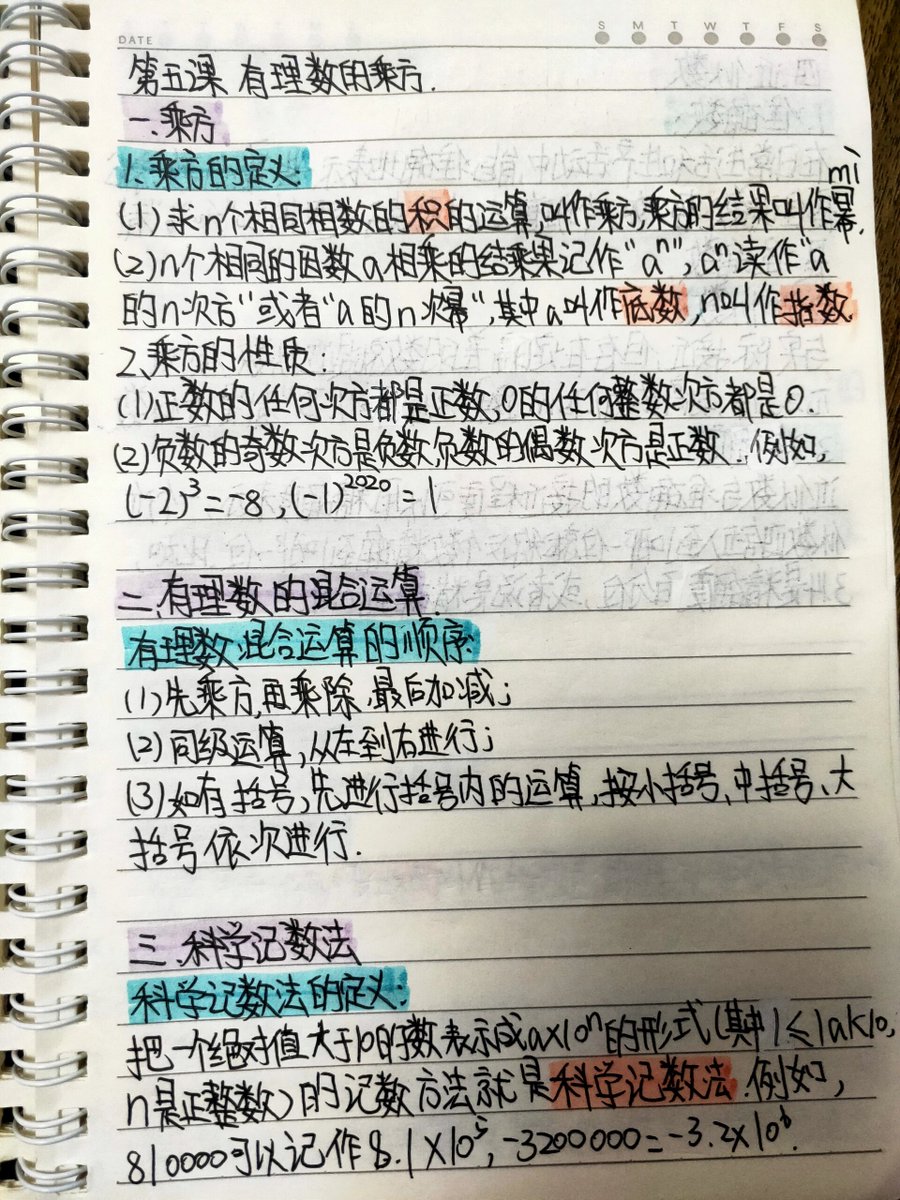 DATE
S M T W T F S
第五课 有理数的乘方.
一.乘方
1.乘方的定义:
mì
(1)求n个相同相数的积的运算,叫作乘方,乘方的结果叫作幂.
(2)n个相同的因数a相乘的结果记作"aⁿ",aⁿ读作"a
的n次方"或者"a的n次幂",其中a叫作底数,n叫作指数
2.乘方的性质:
(1)正数的任何次方都是正数,0的任何整数次方都是0.
(2)负数的奇数次方是负数,负数的偶数次方是正数.例如,
(-2)³=-8,(-1)²⁰²⁰=1
二.有理数的混合运算.
有理数混合运算的顺序:
(1)先乘方,再乘除,最后加减;
(2)同级运算,从左到右进行;
(3)如有括号,先进行括号内的运算,按小括号、中括号、大
括号依次进行.
三.科学记数法
科学记数法的定义:
把一个绝对值大于10的数表示成a×10ⁿ的形式(其中1≤|a|<10,
n是正整数)的记数方法就是科学记数法.例如,
810000可以记作8.1×10⁵,-3200000=-3.2×10⁶.